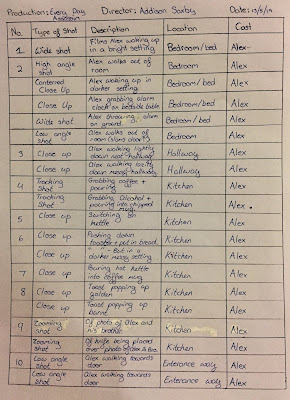 Production: Every Day Assassin Director: Addison Saxby Date: 13/5/19
No. Type of Shot Description Location Cast
1 Wide shot Films Alex waking up in a bright setting Bedroom/bed Alex
2 High angle shot Alex walks out of room Bedroom Alex
Centered Close Up Alex waking up in darker setting Bedroom/bed Alex
Close Up Alex grabbing alarm clock on bedside table Bedroom/bed Alex
Wide shot Alex throwing alarm on ground Bedroom/bed Alex
Low angle shot Alex walks out of room (slams door) Bedroom Alex
3 Close up Alex walking lightly down neat hallway Hallway Alex
Close up Alex walking down messy hallway Hallway Alex
4 Tracking Shot Grabbing coffee + pouring Kitchen Alex
Tracking Shot Grabbing Alcohol + pouring into chipped mug Kitchen Alex
5 Close up Switching on kettle Kitchen Alex
6 Close up Pushing down toaster + put in bread Kitchen Alex
Close up " " - But in a darker messy setting Kitchen Alex
7 Close up Pouring hot kettle into coffee mug Kitchen Alex
8 Close up Toast popping up golden Kitchen Alex
Close up Toast popping up burnt Kitchen Alex
9 Zooming shot Of photo of Alex and his brother Kitchen Alex
Zooming Shot Of knife being placed over photo of Alex & Bro Kitchen Alex
10 Low angle shot Alex walking towards door Enterance way Alex
Low angle Shot Alex walking towards door Enterance way Alex